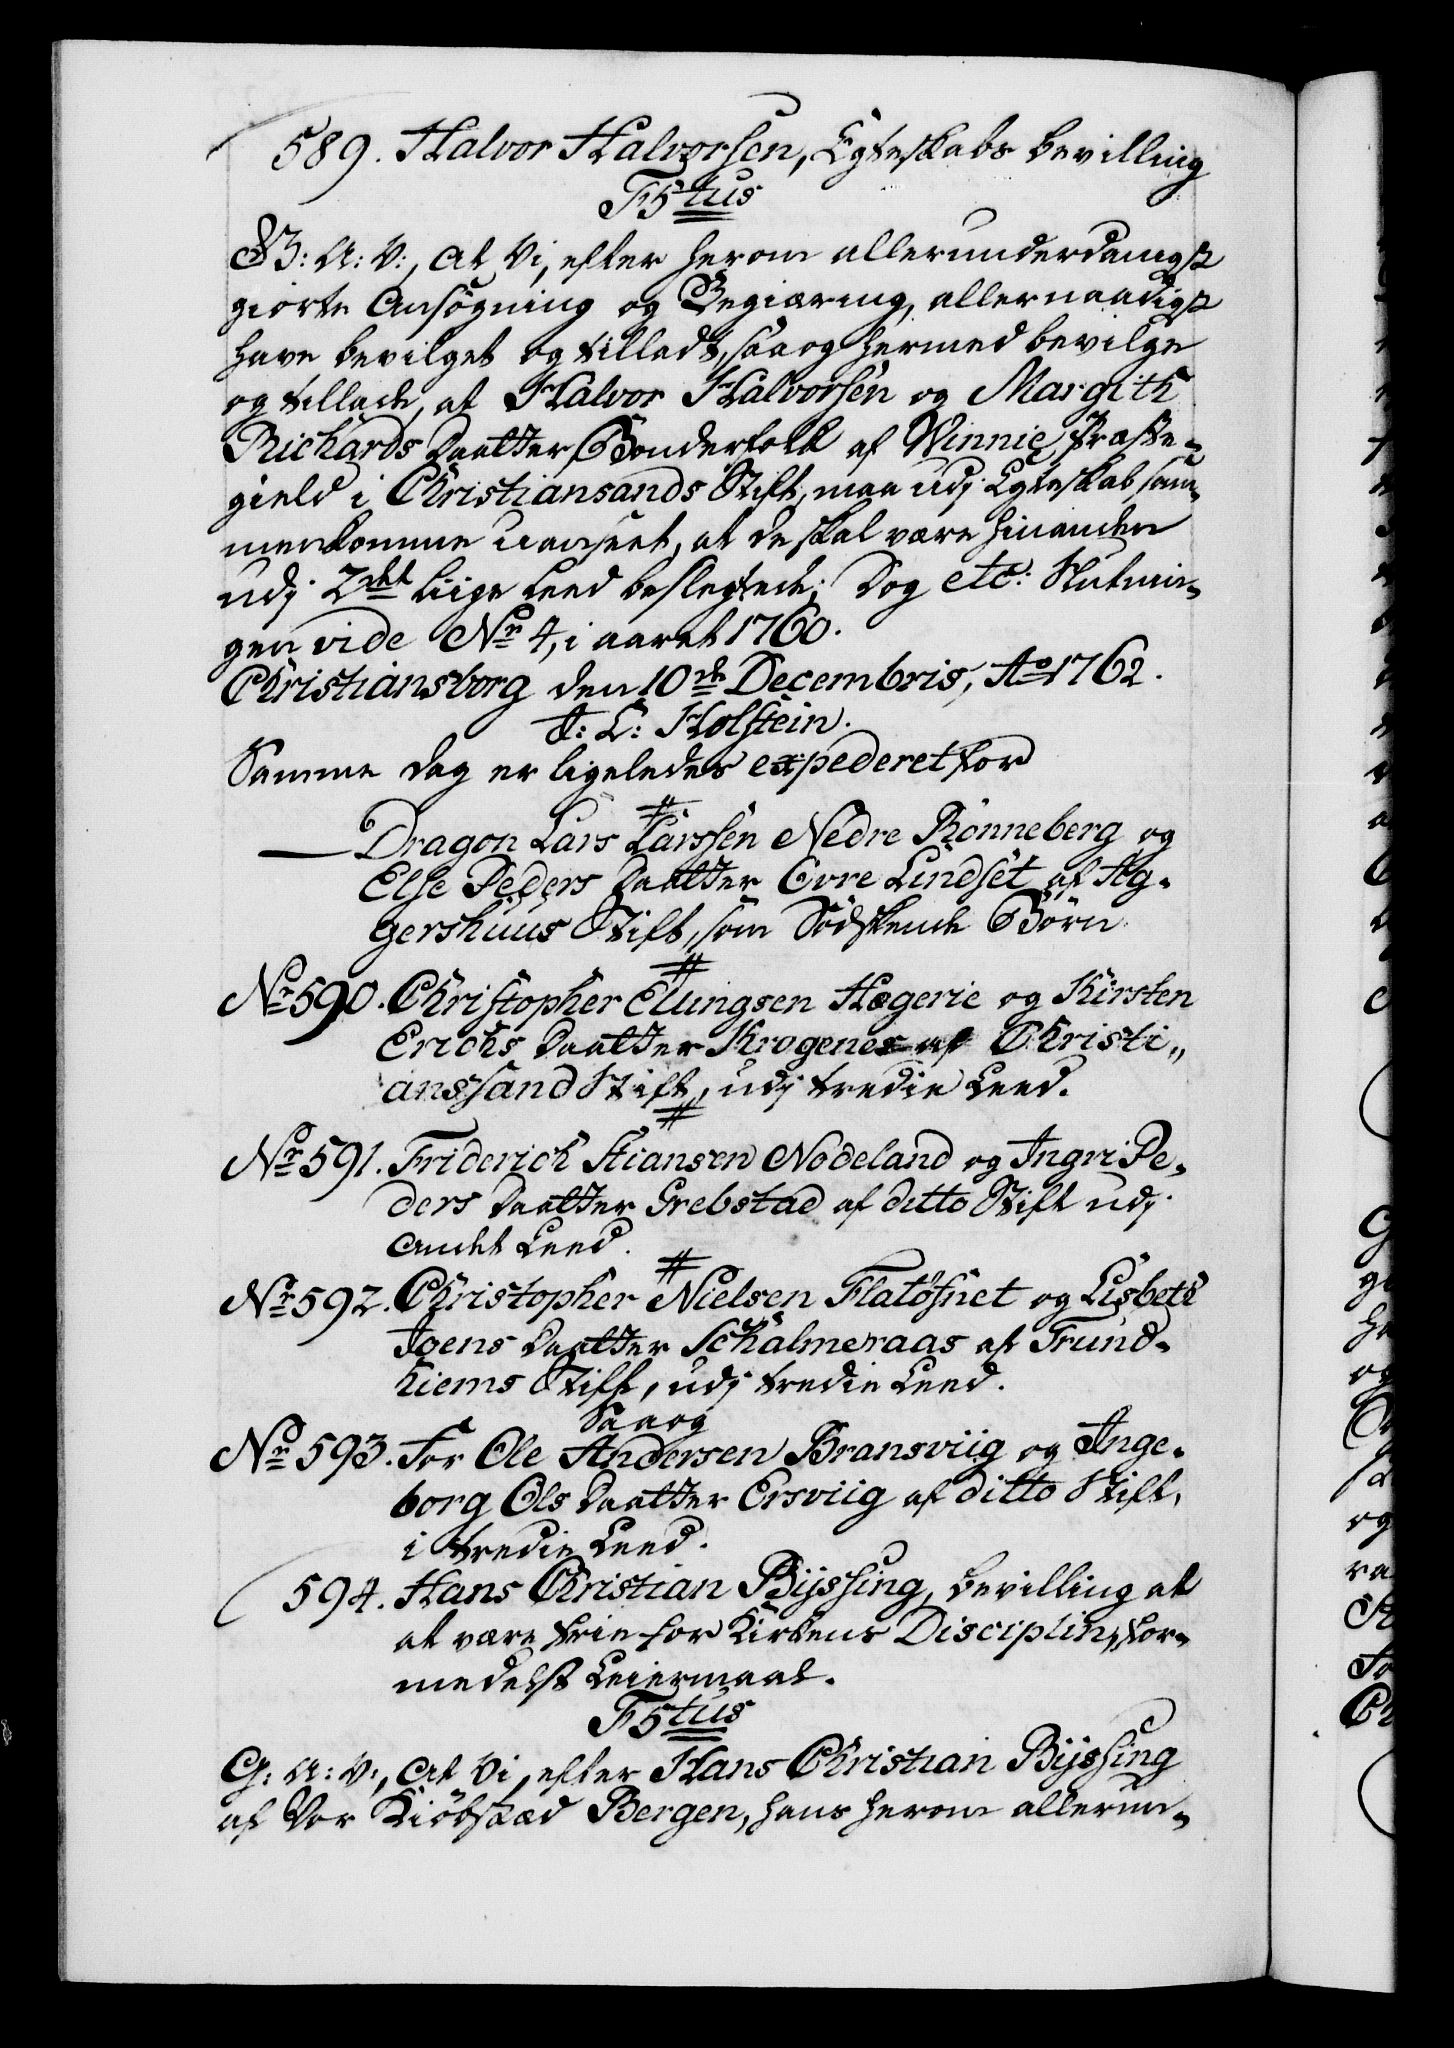 589. Halvor Halvorsen, Egteskabs bevilling
F5tus
G: A: V:, at Vi, efter herom allerunderdanigst
giorte Ansøgning og Begiæring, allernaadigst
have bevilget og tilladt, saa og hermed bevilge
og tillade, at Halvor Halvorsen og Margith
Richards Daatter Bønderfolk af Winnie Præste-
gield i Christiansands Stift, maa udj Egteskab sam-
menkomme uanseet, at de skal være hinanden
udj 2det liige Leed beslegtede; Dog etc: Slutnin-
gen vide No 4, i aaret 1760.
Christiansborg den 10de Decembris, Ao 1762.
J: L: Holstein.
Samme Dag er ligeledes expederet for
Dragon Lars Larssen Nedre Rønneberg og
Else Peders Daatter Ovre Lindset af Ag-
gershuus Stift, som Sødskende Børn
Nr 590. Christopher Ellingsen Hægerie og Kirsten
Erichs Daatter Krogenes af Christi„
anssand Stift, udj tredie Leed.
Nr 591. Friderich Stiansen Nodeland og Ingri Pe-
ders Daatter Grebstad af ditto Stift udj
andet Leed.
Nr 592. Christopher Nielsen Flatøsnet og Lisbeth
Joens Daatter Schalmeraas af Trund-
hiems Stift, udj tredie Leed.
Saa og
Nr 593. for Ole Andersen Bransviig og Inge-
borg Ols Daatter Ersviig af ditto Stift,
i tredie Leed.
594. Hans Christian Byssing, bevilling at
at være frie for Kirkens Disciplin, for-
medelst Leiermaal.
F5tus
G: A: V:, at Vi, efter Hans Christian Byssing
af Vor Kiøbstæd Bergen, hans herom allerun-